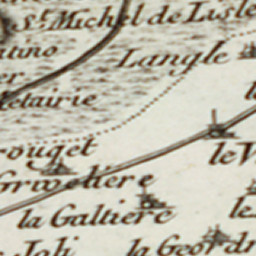 St. Michel de Lisle
atino
Langle
er
Metairie
rouget
le V
Griveliere
la Galtiere
le
Joli
la Geordr